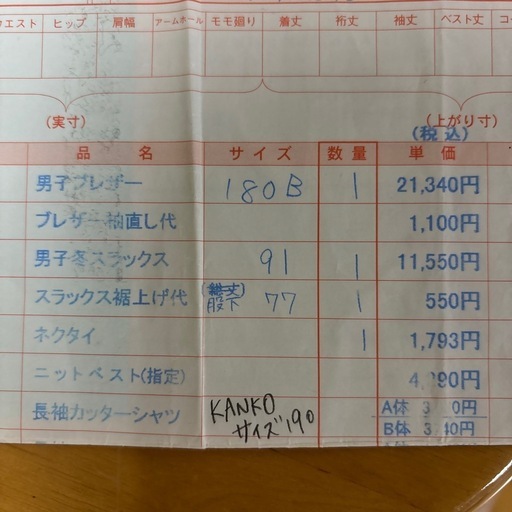 ウエスト ヒップ 肩幅 アームホール モモ廻り 着丈 裄丈 袖丈 ベスト丈
(実寸) (上がり寸)
(税込)
品名 サイズ 数量 単価
男子ブレザー 180B 1 21,340円
ブレザー袖直し代 1,100円
男子冬スラックス 91 1 11,550円
スラックス裾上げ代 (総丈 股下 77 1 550円
ネクタイ 1 1,793円
ニットベスト(指定)
長袖カッターシャツ KANKO A体
サイズ190 B体